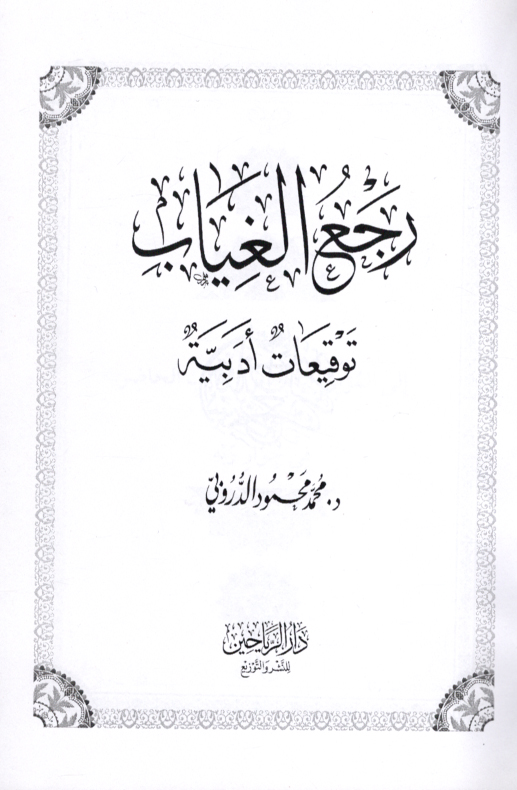 رَجْعُ الغِيَابِ
تَوْقِيعَاتٌ أَدَبِيَّةٌ
د. مُحَمَّد مَحْمُود الدُّرُوبِيّ
دَارُ الرَّيَاحِين
لِلنَّشْرِ وَالتَّوْزِيْع